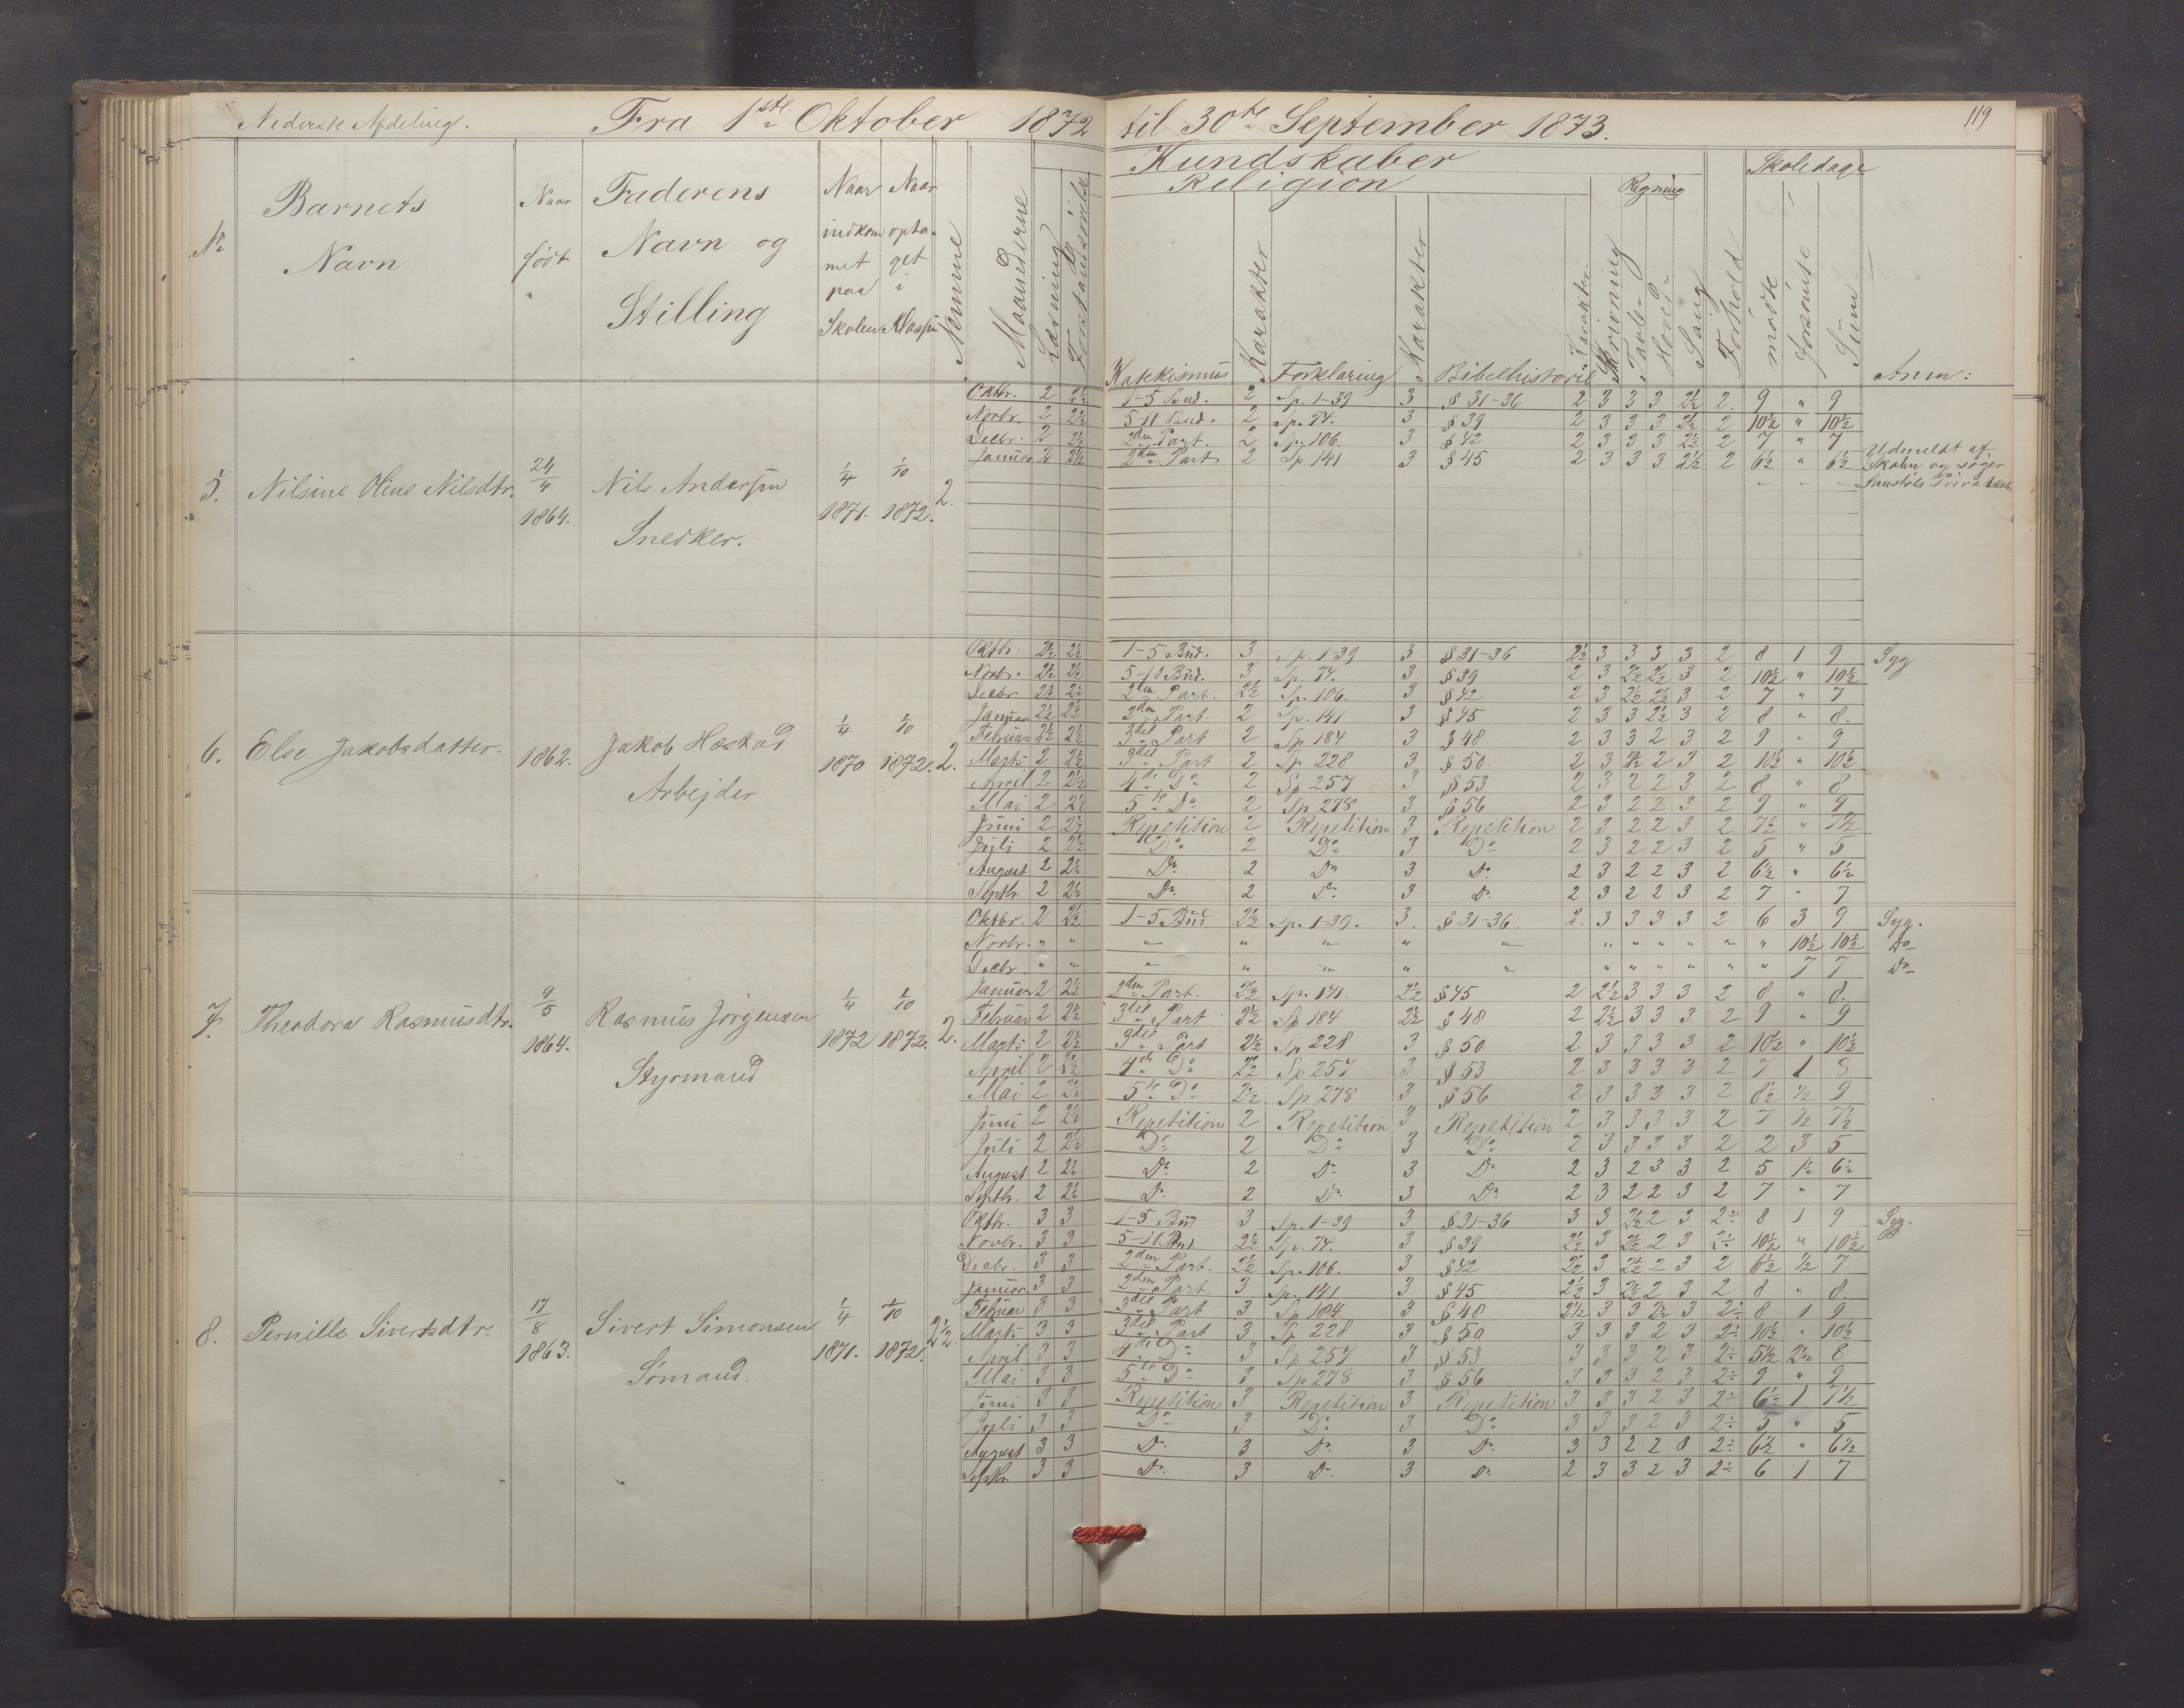 Nederste Afdeling. Fra 1ste Oktober 1872 til 30te September 1873. 119
Kundskaber
Religion Regning Skoledage
No Barnets Navn
Naar født
Faderens Navn og Stilling
Naar indkommet paa Skolen
Naar optaget i Klassen
Nemme
Maanederne
Læsning
Katekismus Karakter Forklaring Karakter Bibelhistorie Karakter Skrivning Tavle- Hoved- Sang Forhold mødte forsømte Sum Anm:
5. Nilsine Oline Nilsdtr. 24/4 1864. Nils Andersen Snedker. 1/4 1871. 1/10 1872. 2.
Oktbr. 2 2½ 1-5 Bud. 2 Sp. 1-39 3 § 31-36 2 3 3 3 2½ 2 9 " 9
Novbr. 2 2½ 5-11 Bud. 2 Sp. 74. 3 § 39 2 3 3 3 2½ 2 10½ " 10½
Decbr. 2 2½ 2den Part. 2 Sp. 106. 3 § 42 2 3 3 3 2½ 2 7 " 7
Januar 2 2½ 2den Part 2 Sp 141 3 § 45 2 3 3 3 2½ 2 6½ " 6½
Udmeldt af
Skolen og søger
6. Else Jakobsdatter. 1862. Jakob Hæstad Arbejder 1/4 1870 1/10 1872. 2.
Oktbr. 2½ 2½ 1-5 Bud. 3 Sp. 1-39 3 § 31-36 2½ 3 3 3 3 2 8 1 9 Syg
Novbr. 2½ 2½ 5-10 Bud. 3 Sp. 74. 3. § 39 2 3 2½ 2½ 3 2 10½ " 10½
Decbr 2½ 2½ 2den Part. 2½ Sp. 106. 3 § 42 2 3 2½ 2½ 3 2 7 " 7
Januar 2½ 2½ 2den Part. 2 Sp. 141 3 § 45 2 3 3 2½ 3 2 8 " 8.
Februar 2½ 2½ 3die Part 2 Sp 184 3 § 48 2 3 3 2 3 2 9 " 9
Marts 2 2½ 3die Part 2 Sp 228 3 § 50. 2 3 2½ 2 3 2 10½ " 10½
April 2 2½ 4de Do 2 Sp 257 3 § 53 2 3 2 2 3 2 8 " 8
Mai 2 2½ 5te Do 2 Sp 278 3 § 56 2 3 2 2 3 2 9 " 9
Juni 2 2½ Repetition 2 Repetition 3 Repetition 2 3 2 2 3 2 7½ " 7½
Juli 2 2½ Do 2 Do 3 Do 2 3 2 2 3 2 5 " 5
August 2 2½ Do 2 Do 3 Do 2 3 2 2 3 2 6½ " 6½
Septbr. 2 2½ Do 2 Do 3 Do 2 3 2 2 3 2 7 " 7
7. Theodora Rasmusdtr. 9/5 1864. Rasmus Jørgensen Styrmand 1/4 1872 1/10 1872. 2.
Oktbr. 2 2½ 1-5 Bud 2½ Sp. 1-39. 3. § 31-36. 2. 3 3 3 3 2 6 3 9 Syg.
Novbr. " " " " " " " " " " " " " " 10½ 10½ Do
Decbr " " " " " " " " " " " " " " 7 7 Do
Januar 2 2½ 2den Part. 2½ Sp. 141. 2½ § 45 2 2½ 3 3 3 2 8 " 8.
Februar 2 2½ 3die Part 2½ Sp 184 2½ § 48 2 2½ 3 3 3 2 9 " 9
Marts 2 2½ 3die Part 2½ Sp 228 3 § 50 2 3 3 3 3 2 10½ " 10½
April 2 2½ 4de Do 2½ Sp 257 3 § 53 2 3 3 3 3 2 7 1 8.
Mai 2 2½ 5te Do 2½ Sp 278 3 § 56 2 3 3 3 3 2 8½ ½ 9
Juni 2 2½ Repetition 2 Repetition 3 Repetition 2 3 3 3 3 2 7 ½ 7½
Juli 2 2½ Do 2 Do 3 Do 2 3 3 3 3 2 2 3 5
August 2 2½ Do 2 Do 3 Do 2 3 2 3 3 2 5 1½ 6½
Septbr. 2 2½ Do 2 Do 3 Do 2 3 2 2 3 2 7 " 7
8. Pernille Sivertsdtr. 17/8 1863. Sivert Simonsen Sømand. 1/4 1871. 1/10 1872. 2½.
Oktbr. 3 3 1-5 Bud 3 Sp. 1-39 3 § 31-36 3 3 2½ 2 3 2÷ 8 1 9 Syg.
Novbr. 3 3 5-10 Bud. 2½ Sp. 74. 3 § 39 2½ 3 2½ 2 3 2÷ 10½ " 10½
Decbr. 3 3 2den Part. 2½ Sp. 106. 3 § 42 2½ 3 2½ 2 3 2 6½ ½ 7
Januar 3 3 2den Part. 3 Sp. 141 3 § 45 2½ 3 2½ 2 3 2 8 " 8.
Februar 3 3 3die Part 3 Sp 184 3 § 48 2½ 3 3 2½ 3 2÷ 8 1 9
Marts 3 3 3die Part 3 Sp 228 3 § 50 3 3 3 2 3 2÷ 10½ " 10½
April 3 3 4de Do 3 Sp 257 3 § 53 3 3 3 2 3 2÷ 5½ 2½ 8
Mai 3 3 5te Do 3 Sp 278 3 § 56 3 3 3 2 3 2÷ 9 " 9
Juni 3 3 Repetition 3 Repetition 3 Repetition 3 3 3 2 3 2÷ 6½ 1 7½
Juli 3 3 Do 3 Do 3 Do 3 3 3 2 3 2÷ 5 " 5
August 3 3 Do 3 Do 3 Do 3 3 2 2 3 2÷ 6½ " 6½
Septbr. 3 3 Do 3 Do 3 Do 2 3 3 2 3 2÷ 6 1 7